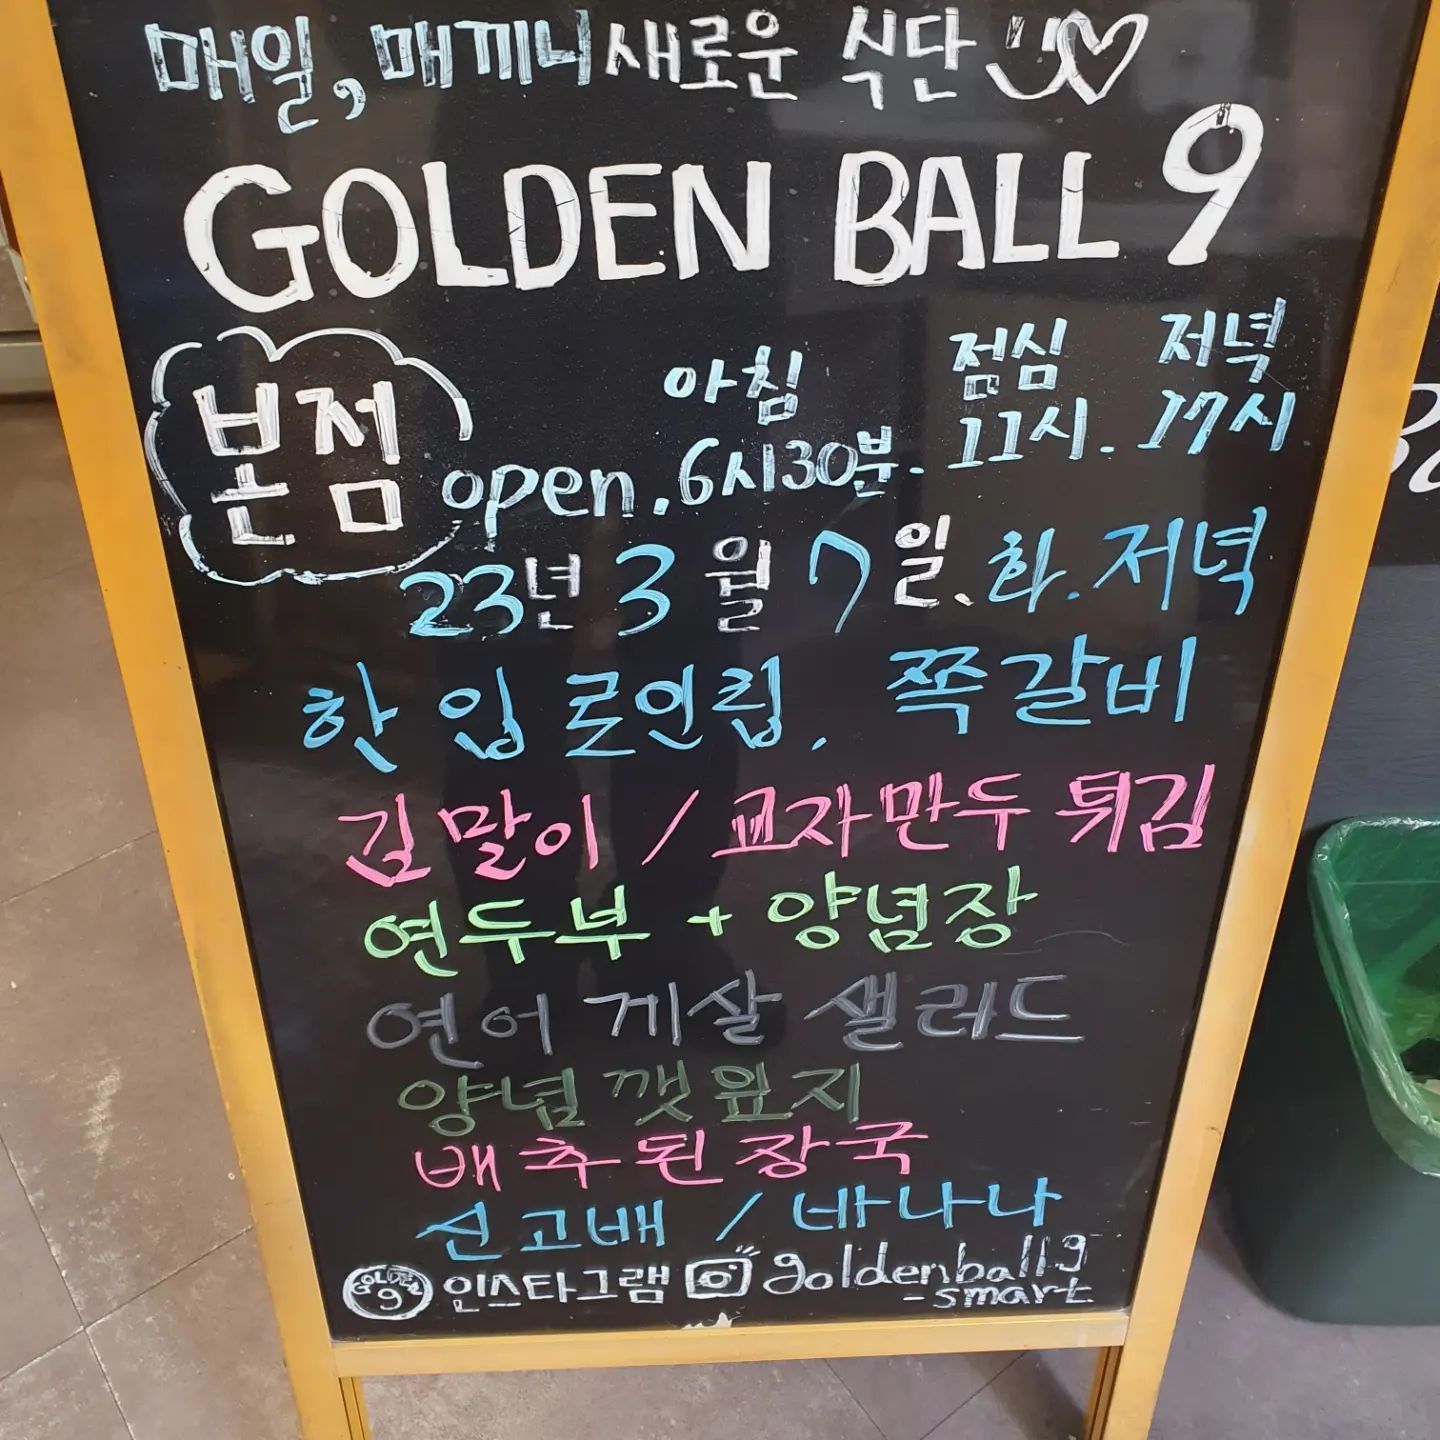 매일, 매끼니 새로운 식단
GOLDEN BALL 9
본점
아침 점심 저녁
open. 6시30분. 11시. 17시
23년 3월 7일. 화. 저녁
한입 로인립. 쪽갈비
김말이 / 교자만두 튀김
연두부 + 양념장
연어 게살 샐러드
양념 깻잎지
배추된장국
신고배 / 바나나
GOLDEN 9 인스타그램 goldenball9
-smart